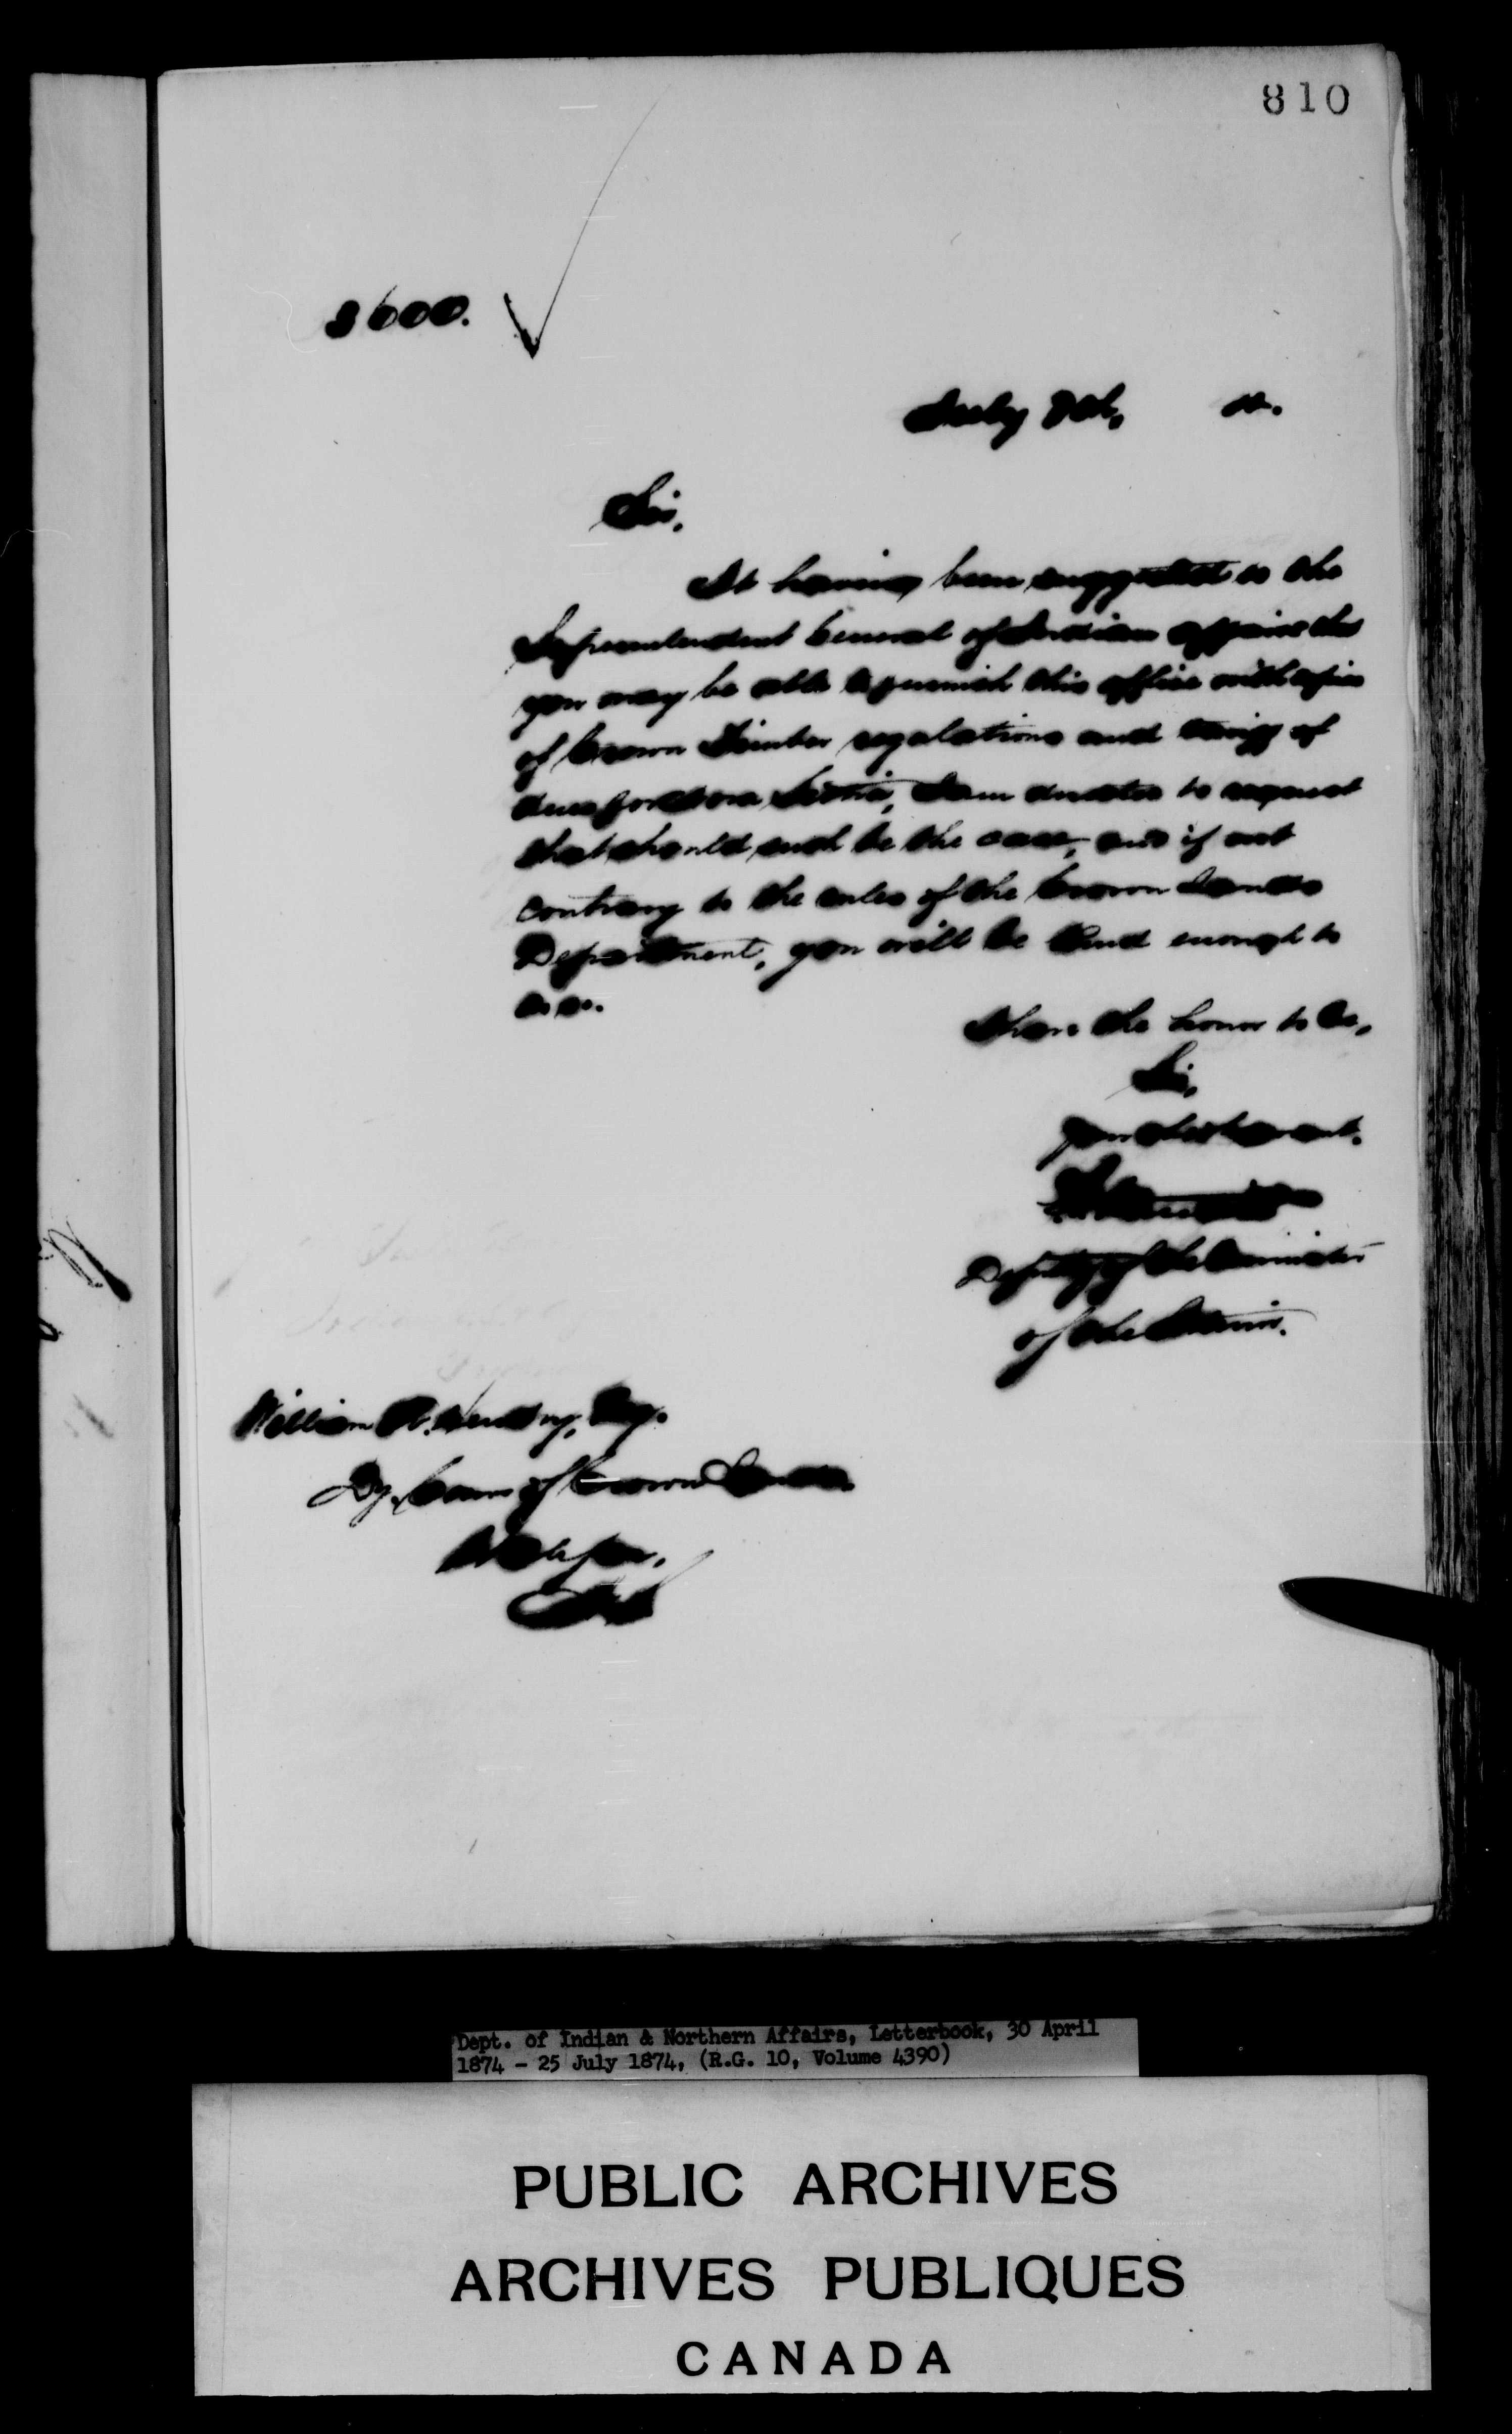 810
3600.
July 9th,
Sir,
It having been suggested to the
Superintendent General of Indian affairs that
you may be able to furnish this office with copies
of Crown Timber regulations and tariff of
dues for Nova Scotia, I am directed to request
that should such be the case, and if not
contrary to the rules of the Crown Lands
Department, you will be kind enough to
do so.
I have the honor to be,
Sir,
Your obedt servant.
Deputy of the Minister
of the Interior.
William A. Hendry, Esq.
Dy. Comr of Crown Lands.
Halifax.
Dept. of Indian & Northern Affairs, Letterbook, 30 April
1874 - 25 July 1874, (R.G. 10, Volume 4390)
PUBLIC ARCHIVES
ARCHIVES PUBLIQUES
CANADA